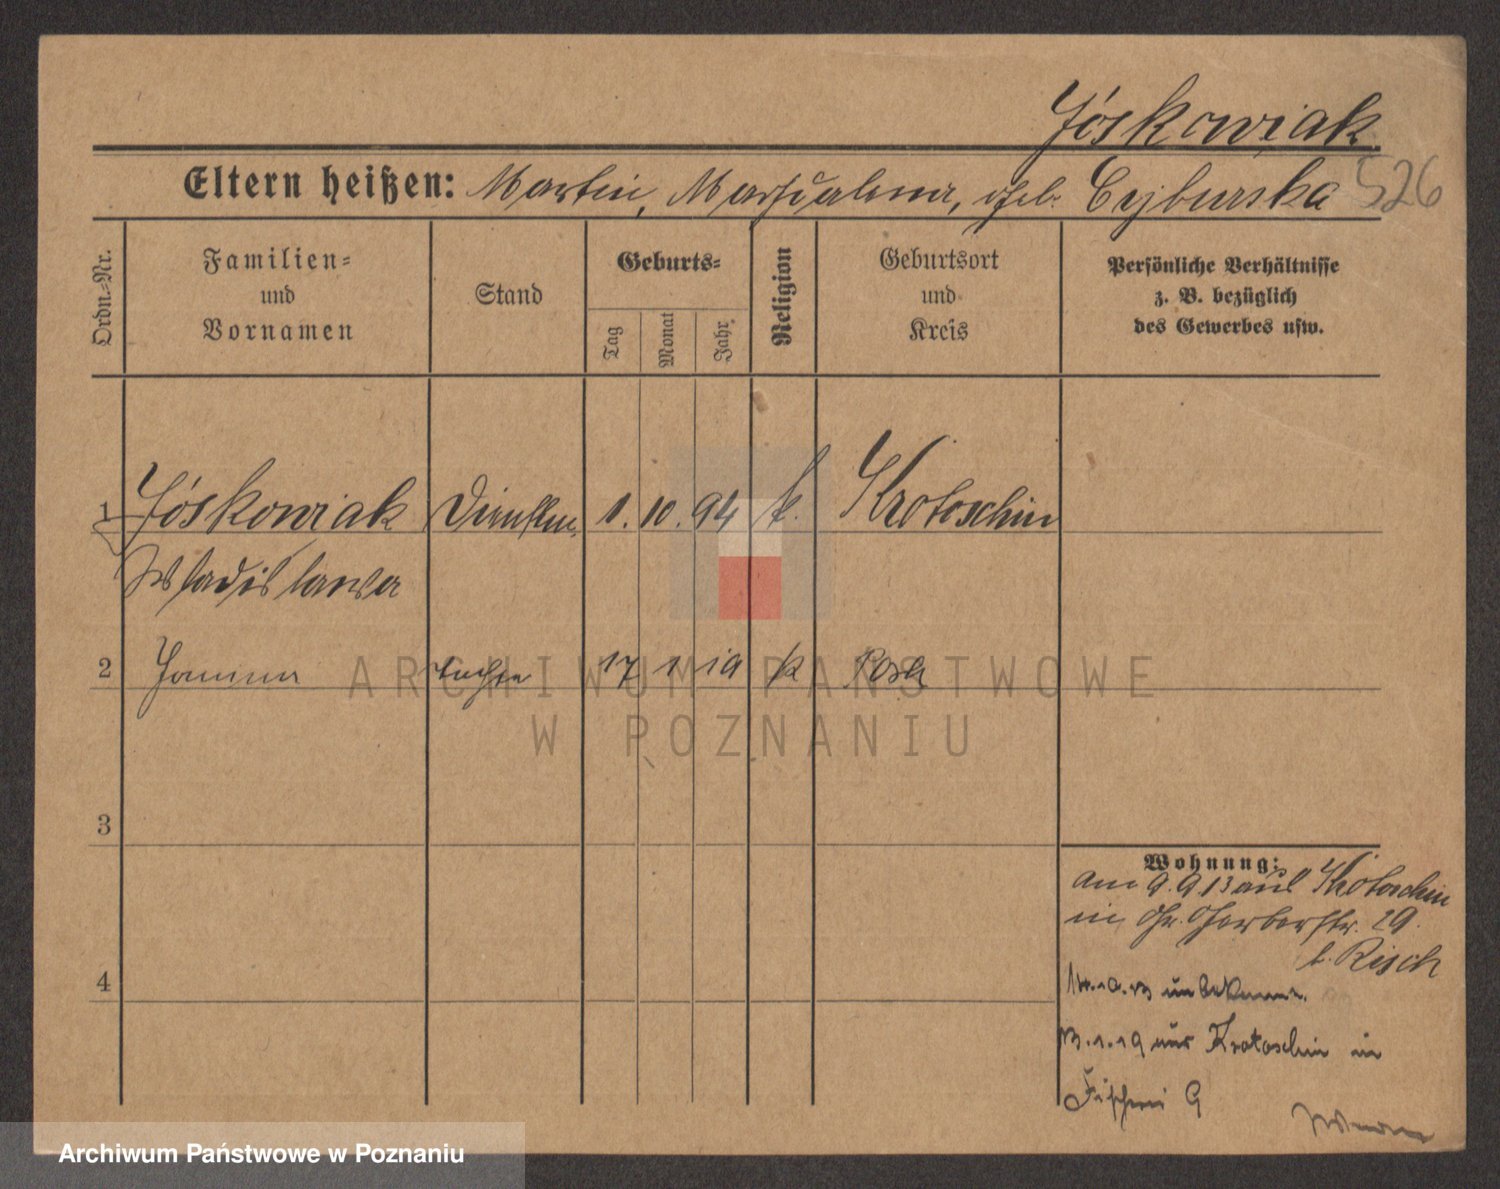 Jóskowiak.
Eltern heißen: Martin, Magdalena, geb. Cejburska 526
Ordn.-Nr.
Familien-
und
Vornamen
Stand
Geburts-
Tag
Monat
Jahr
Religion
Geburtsort
und
Kreis
Persönliche Verhältnisse
z. B. bezüglich
des Gewerbes usw.
1 Jóskowiak 1. 10. 94 k. Krotoschin
Wladislawa
2 17 1 19 k Posen
3
4
Wohnung:
am 9.9.13 aus Krotoschin
in Gr. Gerberstr. 29.
b. Risch
unbekannt.
13.1.19 aus Krotoschin in
Fischerei 9
ARCHIWUM PAŃSTWOWE
W POZNANIU
Archiwum Państwowe w Poznaniu